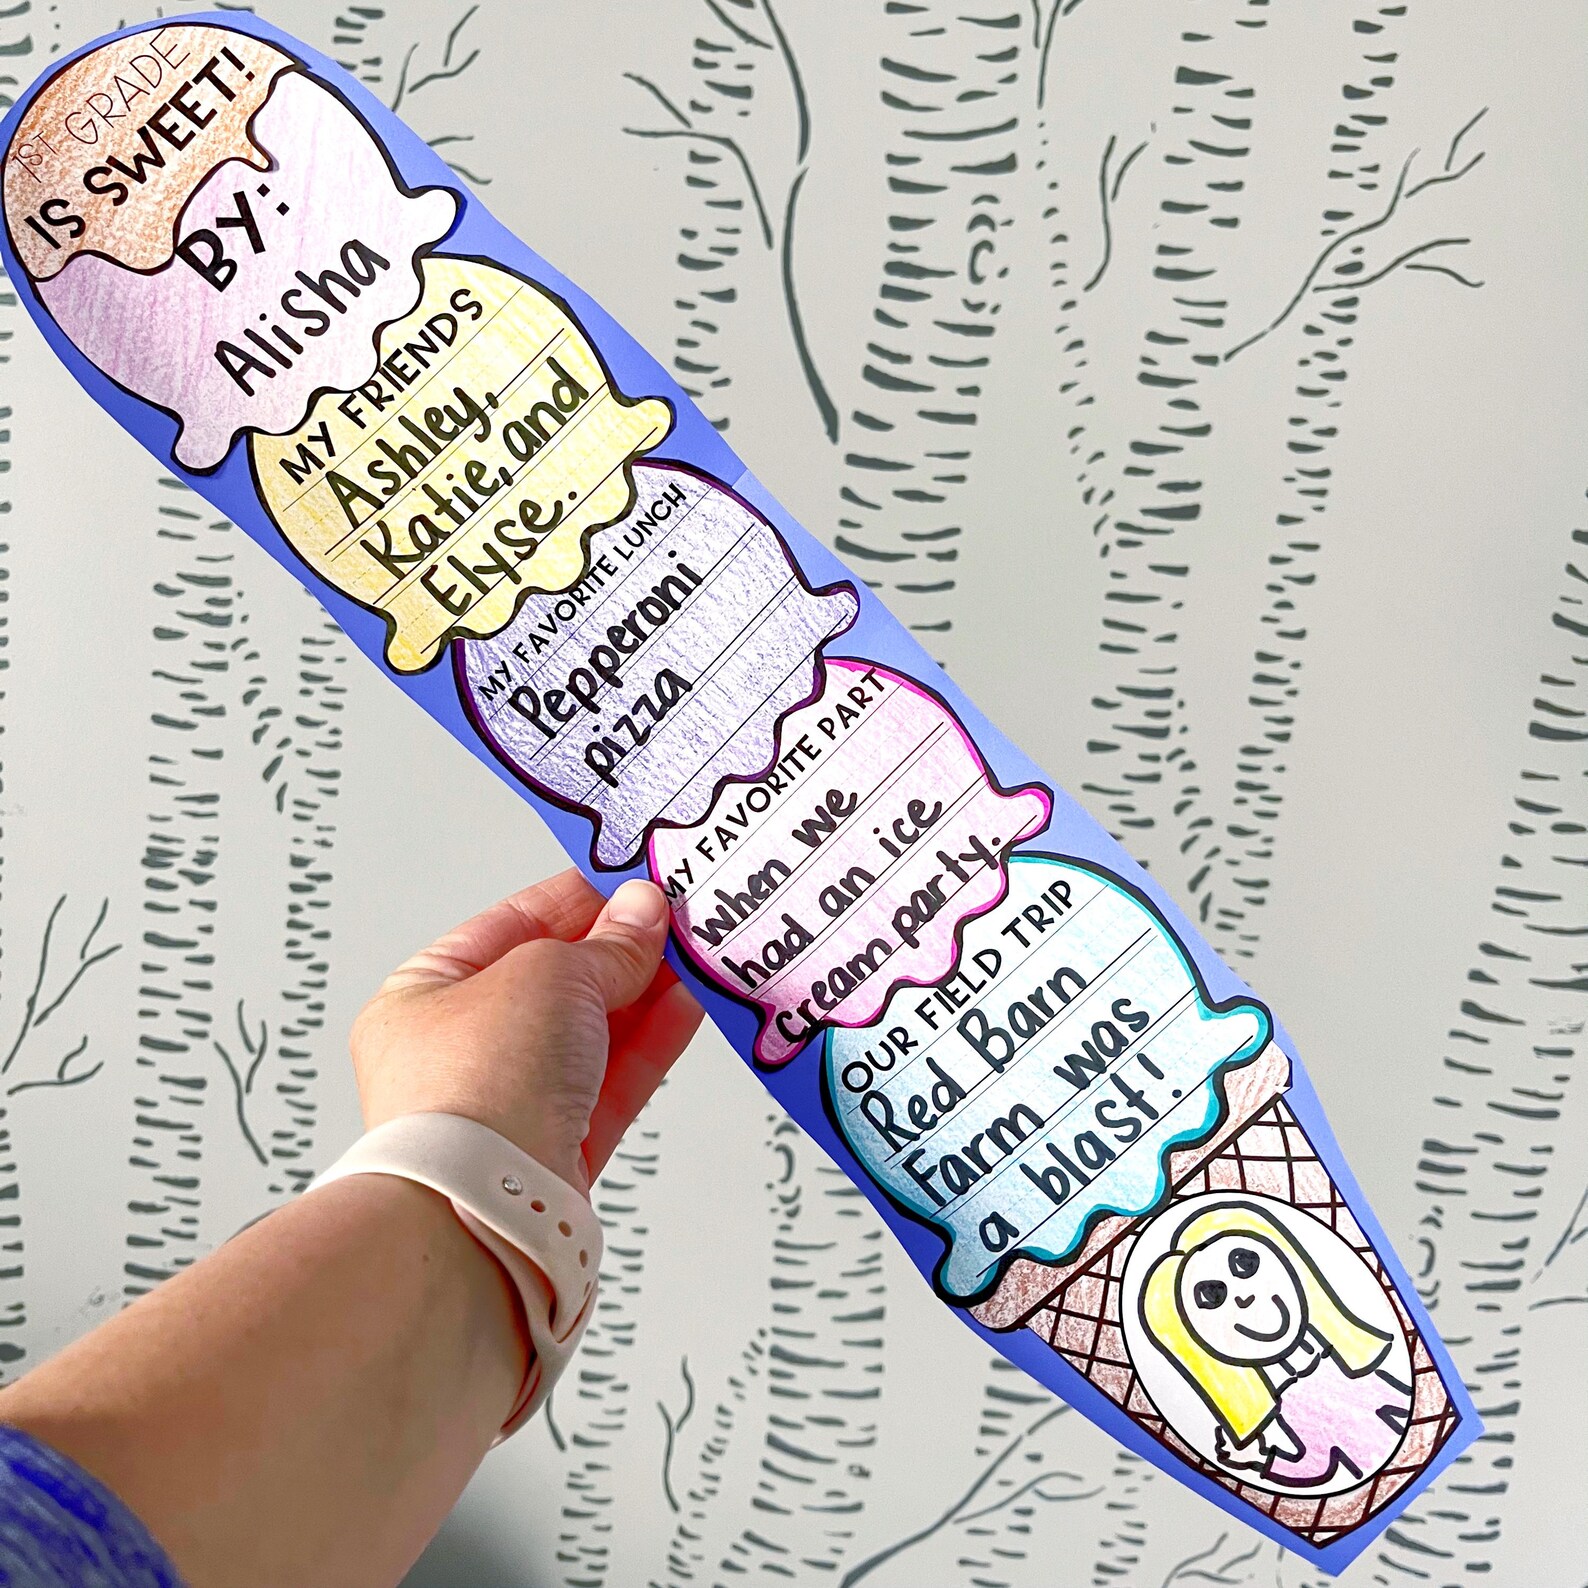 1ST GRADE
IS SWEET!
By:
Alisha
MY FRIENDS
Ashley,
Katie, and
Elyse.
MY FAVORITE LUNCH
Pepperoni
pizza
MY FAVORITE PART
when we
had an ice
cream party.
OUR FIELD TRIP
Red Barn
Farm was
a blast!